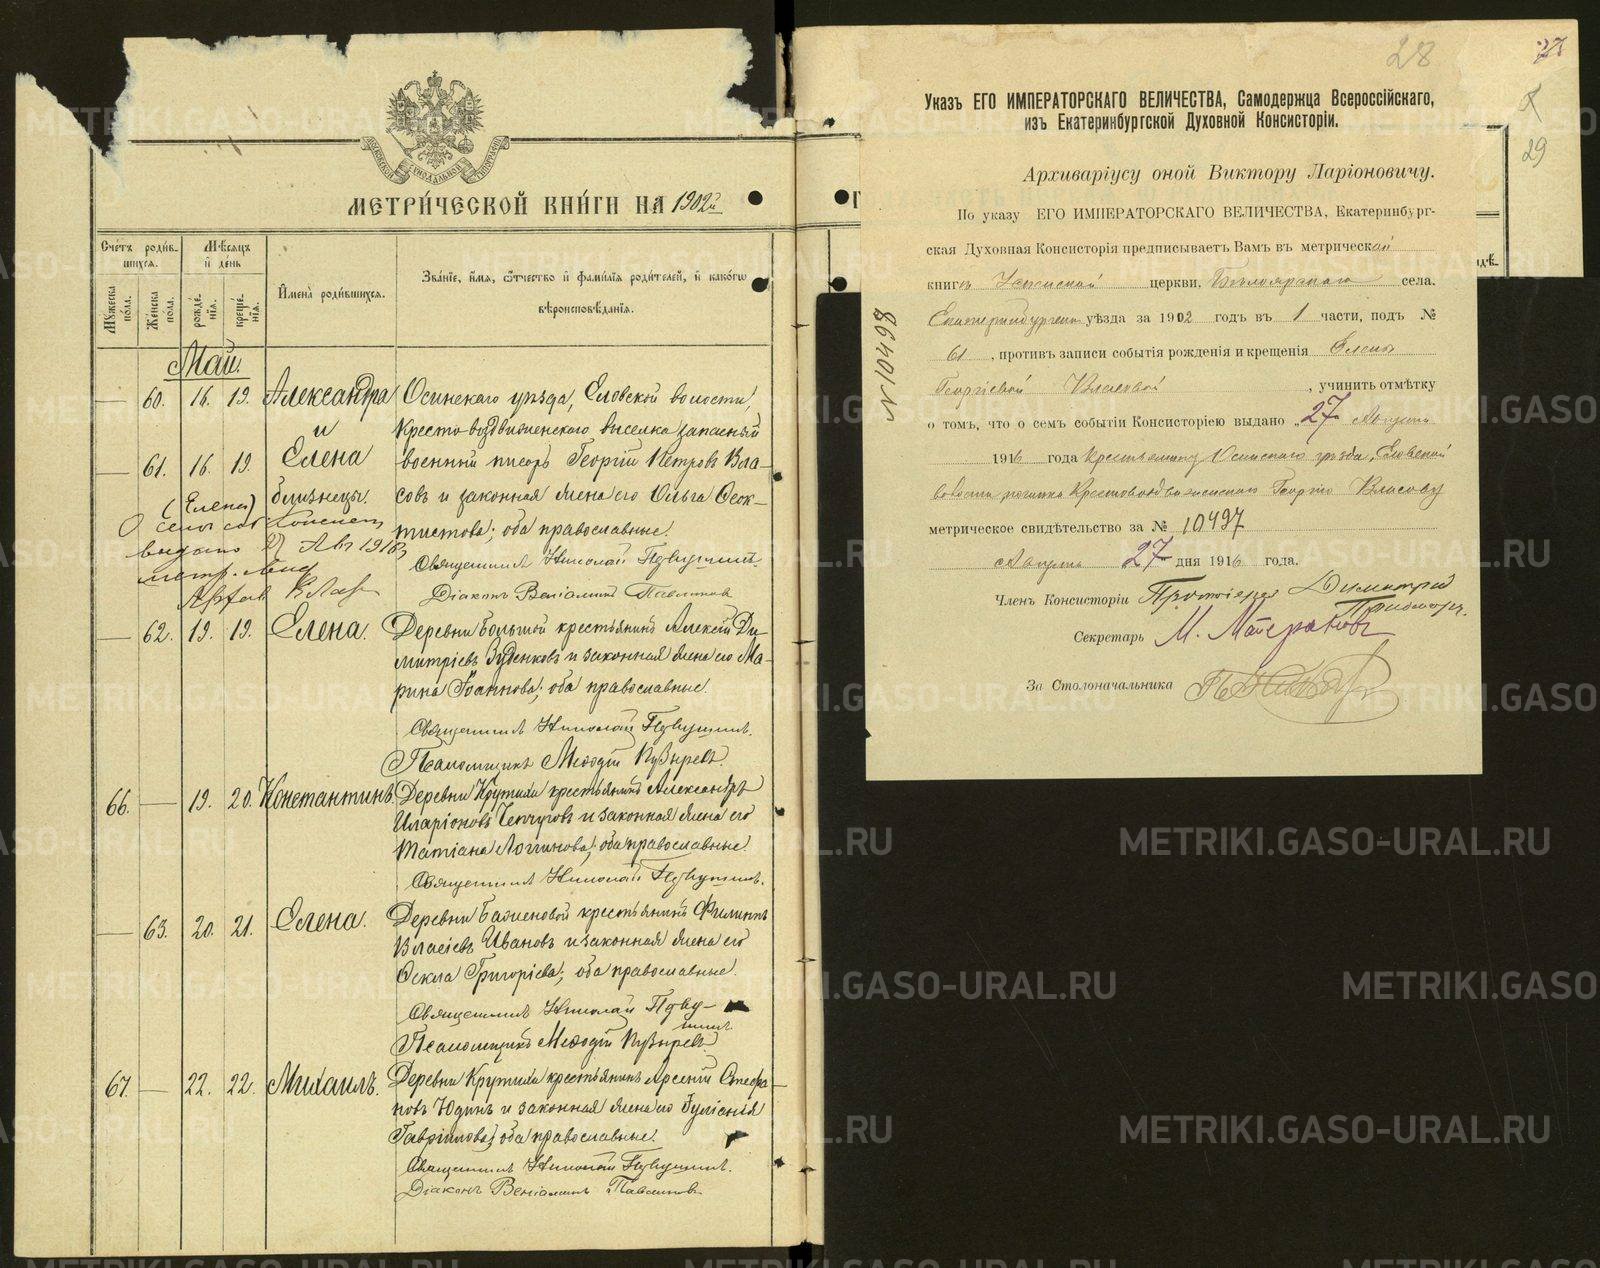 МЕТРИ́ЧЕСКОЙ КНИ́ГИ НА 1902й
Сче́тъ роди́вшихся.
Мѣ́сяцъ и день
Му́жеска по́ла.
Же́нска по́ла.
рожде́нія.
креще́нія.
Имена̀ роди́вшихся.
Зва́ніе, и́мя, ѻ҆́тчество и фами́лія роди́телей, и како́гѡ
вѣроисповѣ́данія.
Май.
— 60. 16. 19. Александра Осинскаго уѣзда, Еловской волости,
и Кресто-воздвиженскаго выселка запасный
— 61. 16. 19. Елена военный писарь Георгій Петровъ Вла-
близнецы. совъ и законная жена его Ольга Ѳеок-
тистова; оба православные.
(Елены)
О семъ соб. Консист.
выдано 27 Авг 1916
метр. свид
Священникъ Николай
Діаконъ Веніаминъ Павлиновъ
— 62. 19. 19. Елена. Деревни Большой крестьянинъ Алексій Ди-
митріевъ Зуденковъ и законная жена его Ма-
рина Іоаннова; оба православные.
Священникъ Николай
Псаломщикъ Меѳодій Пузыревъ.
66. — 19. 20. Константинъ. Деревни Крутихи крестьянинъ Александръ
Иларіоновъ Чепчуговъ и законная жена его
Татіана Логгинова; оба православные.
Священникъ Николай
— 63. 20. 21. Елена. Деревни крестьянинъ Филиппъ
Власіевъ Ивановъ и законная жена его
Ѳекла Григоріева; оба православные.
Священникъ Николай
Псаломщикъ Меѳодій Пузыревъ.
67. — 22. 22. Михаилъ. Деревни Крутихи крестьянинъ Арсеній Стефа-
новъ Юдинъ и законная жена его Іуліанія
Гавріилова; оба православные.
Священникъ Николай
Діаконъ Веніаминъ Павлиновъ
28
29
Указъ ЕГО ИМПЕРАТОРСКАГО ВЕЛИЧЕСТВА, Самодержца Всероссійскаго,
изъ Екатеринбургской Духовной Консисторіи.
Архиваріусу оной Виктору Ларіоновичу.
По указу ЕГО ИМПЕРАТОРСКАГО ВЕЛИЧЕСТВА, Екатеринбург-
ская Духовная Консисторія предписываетъ Вамъ въ метрической
книгѣ Успенской церкви, Бѣлоярскаго села.
Екатеринбургскаго уѣзда за 1902 годъ въ 1 части, подъ №
61 , противъ записи событія рожденія и крещенія Елены
Георгіевой Власовой , учинить отмѣтку
о томъ, что о семъ событіи Консисторіею выдано „27 Августа
1916 года крестьянину Осинскаго уѣзда, Еловской
волости Крестовоздвиженскаго Георгію Власову
метрическое свидѣтельство за № 10497
Августа 27 дня 1916 года.
Членъ Консисторіи Протоіерей Димитрій
Секретарь М.
За Столоначальника
№ 10498
METRIKI.GASO-URAL.RU